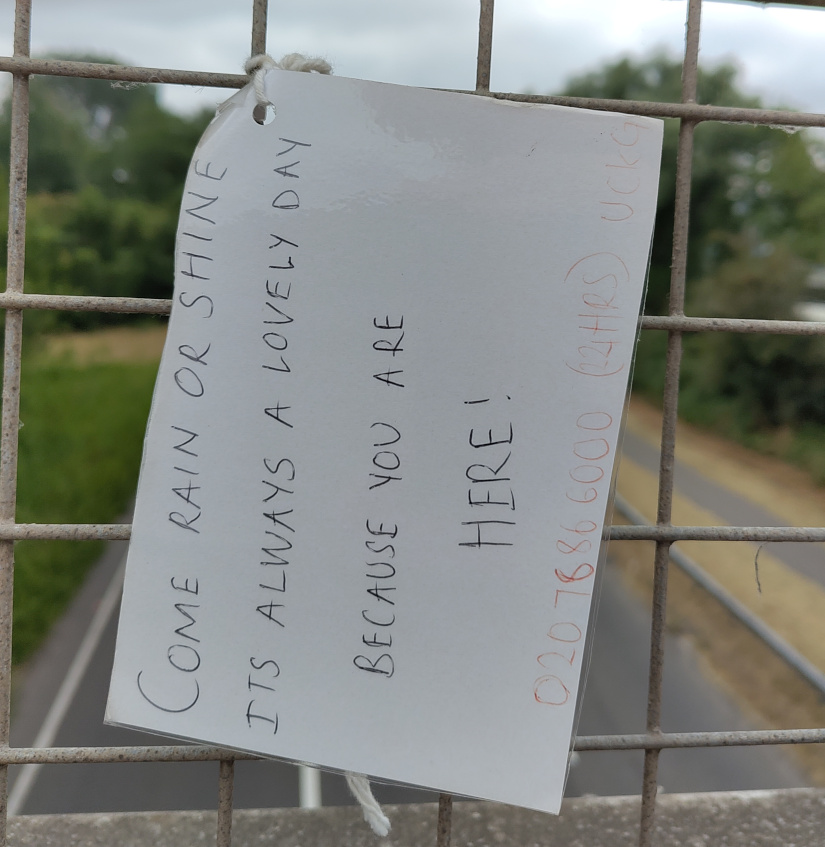 COME RAIN OR SHINE
ITS ALWAYS A LOVELY DAY
BECAUSE YOU ARE
HERE!
020 7686 6000 (24HRS) UCKG